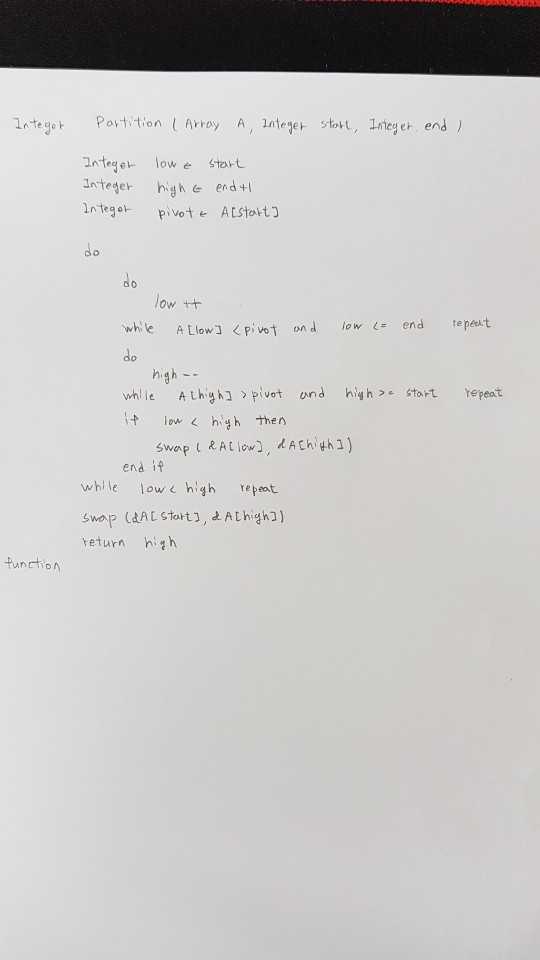 Integer Partition ( Array A, Integer start, Integer end )
Integer low ← start
Integer high ← end+1
Integer pivot ← A[start]
do
do
low ++
while A[low] < pivot and low <= end repeat
do
high --
while A[high] > pivot and high >= start repeat
if low < high then
swap ( &A[low], &A[high])
end if
while low < high repeat
swap (&A[start], &A[high])
return high
function